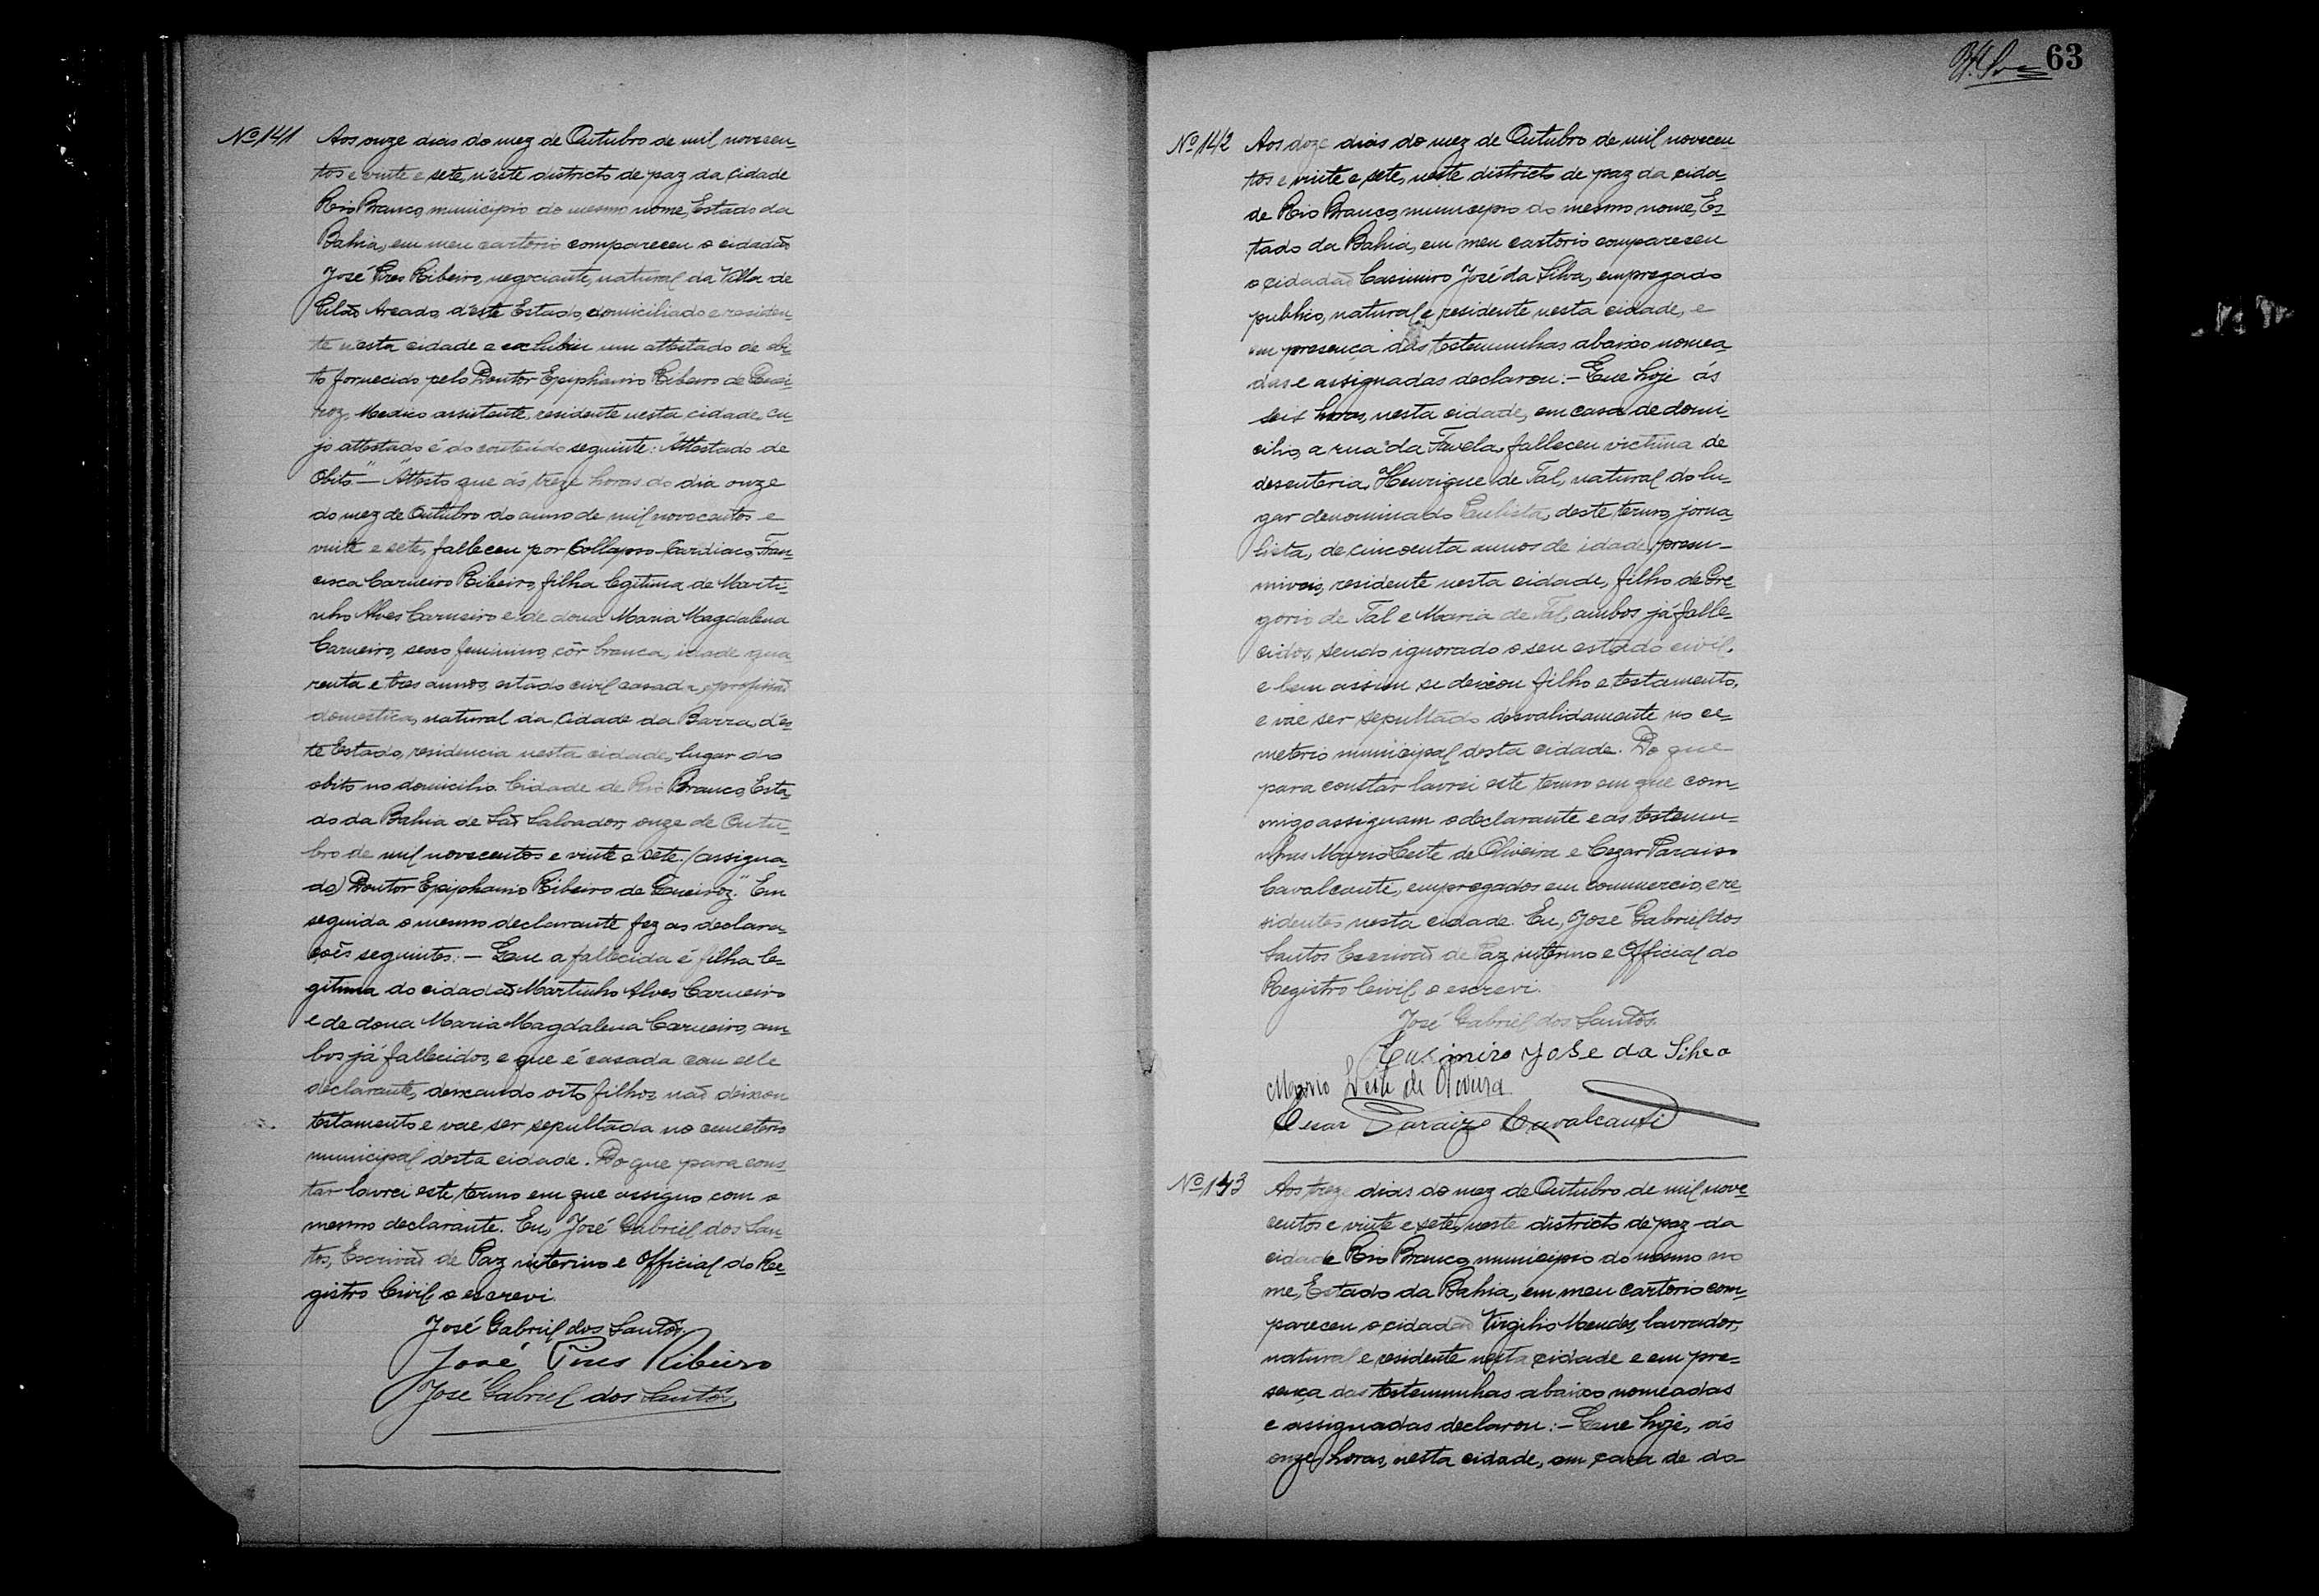 Nº 141 Aos onze dias do mez de Outubro de mil novecen-
tos e vinte e sete, n'este districto de paz da cidade
Rio Branco, municipio do mesmo nome, Estado da
Bahia, em meu cartorio compareceu o cidadão
José Pires Ribeiro, negociante, natural da Villa de
Pilão Arcado, d'este Estado, domiciliado e residen-
te n'esta cidade e exhibiu um attestado de obi-
to fornecido pelo Doutor Epiphanio Ribeiro de Quei-
roz, Medico assistente, residente nesta cidade, cu-
jo attestado é do conteúdo seguinte: Attestado de
Obito" — "Attesto que ás treze horas do dia onze
do mez de Outubro do anno de mil novecentos e
vinte e sete, falleceu por Collapso Cardiaco, Fran-
cisca Carneiro Ribeiro, filha legitima de Marti-
nho Alves Carneiro e de dona Maria Magdalena
Carneiro, sexo feminino, côr branca, idade qua-
renta e tres annos, estado civil casada, e profissão
domestica, natural da Cidade da Barra, d'es-
te Estado, residencia nesta cidade, lugar do
obito no domicilio. Cidade de Rio Branco, Esta-
do da Bahia de São Salvador, onze de Outu-
bro de mil novecentos e vinte e sete. (assigna-
do) Doutor Epiphanio Ribeiro de Queiroz." Em
seguida o mesmo declarante fez as declara-
ções seguintes: — Que a fallecida é filha le-
gitima do cidadão Martinho Alves Carneiro
e de dona Maria Magdalena Carneiro, am-
bos já fallecidos, e que é casada com elle
declarante, deixando oito filhos, não deixou
testamento e vae ser sepultada no cemeterio
municipal desta cidade. Do que para cons-
tar lavrei este termo em que assigno com o
mesmo declarante. Eu, José Gabriel dos San-
tos, Escrivão de Paz interino e Official do Re-
gistro Civil, o escrevi.
José Gabriel dos Santos
José Pires Ribeiro
José Gabriel dos Santos
63
Nº 142 Aos doze dias do mez de Outubro de mil novecen
tos e vinte e sete, neste districto de paz da cida-
de Rio Branco, municipio do mesmo nome, Es-
tado da Bahia, em meu cartorio compareceu
o cidadão Casimiro José da Silva, empregado
publico, natural e residente nesta cidade, e
em presença das testemunhas abaixo nomea-
das e assignadas declarou: — Que hoje ás
seis horas, nesta cidade, em casa de domi-
cilio, a rua da Favela, falleceu victima de
desenteria, Henrique de Tal, natural do lu-
gar denominado Paulista, deste termo, jorna-
lista, de cincoenta annos de idade, presu-
miveis, residente nesta cidade, filho de Gre-
gorio de Tal e Maria de Tal, ambos já falle-
cidos, sendo ignorado o seu estado civil,
e bem assim se deixou filho e testamento,
e vae ser sepultado desvalidamente no ce-
meterio municipal desta cidade. Do que
para constar lavrei este termo em que com-
migo assignam o declarante e as testemu-
nhas Mario Leite de Oliveira e Cezar Paraiso
Cavalcanti, empregados em commercio, e re-
sidentes nesta cidade. Eu, José Gabriel dos
Santos Escrivão de Paz interino e Official do
Registro Civil, o escrevi.
José Gabriel dos Santos
Casimiro José da Silva
Mario Leite de Oliveira
Cesar Paraizo Cavalcanti
Nº 143 Aos treze dias do mez de Outubro de mil nove-
centos e vinte e sete, neste districto de paz da
cidade Rio Branco, municipio do mesmo no
me, Estado da Bahia, em meu cartorio com-
pareceu o cidadão Virgilio Mendes, lavrador,
natural e residente nesta cidade e em pre-
sença das testemunhas abaixo nomeadas
e assignadas declarou: — Que hoje, ás
onze horas, nesta cidade, em casa de do